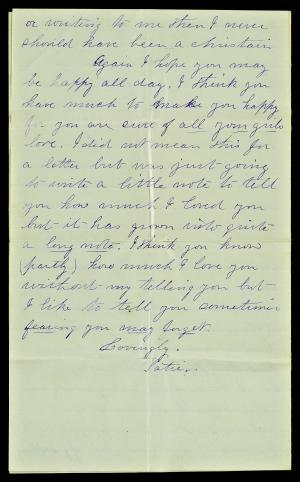 or writing to me then I never
should have been a christain
Again I hope you may
be happy all day. I think you
have much to make you happy
for you are sure of all your girls
love. I did not mean this for
a letter but was just going
to write a little note to tell
you how much I loved you
but it has grown into quite
a long note. I think you know
(partly) how much I love you
without my telling you but
I like to tell you sometimes
fearing you may forget.
Lovingly.